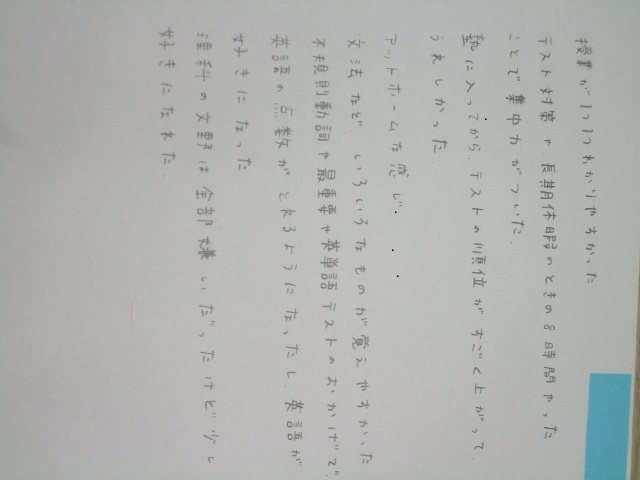 授業が1つ1つわかりやすかった
テスト対策や長期休暇のときの8時間やった
ことで集中力がついた.
塾に入ってから、テストの順位がすごく上がって、
うれしかった
アットホームな感じ.
文法など、いろいろなものが覚えやすかった
不規則動詞や最重要や英単語テストのおかげで
英語の点数がとれるようになったし、英語が
好きになった
理科の分野は全部嫌いだったけど少し
好きになれた